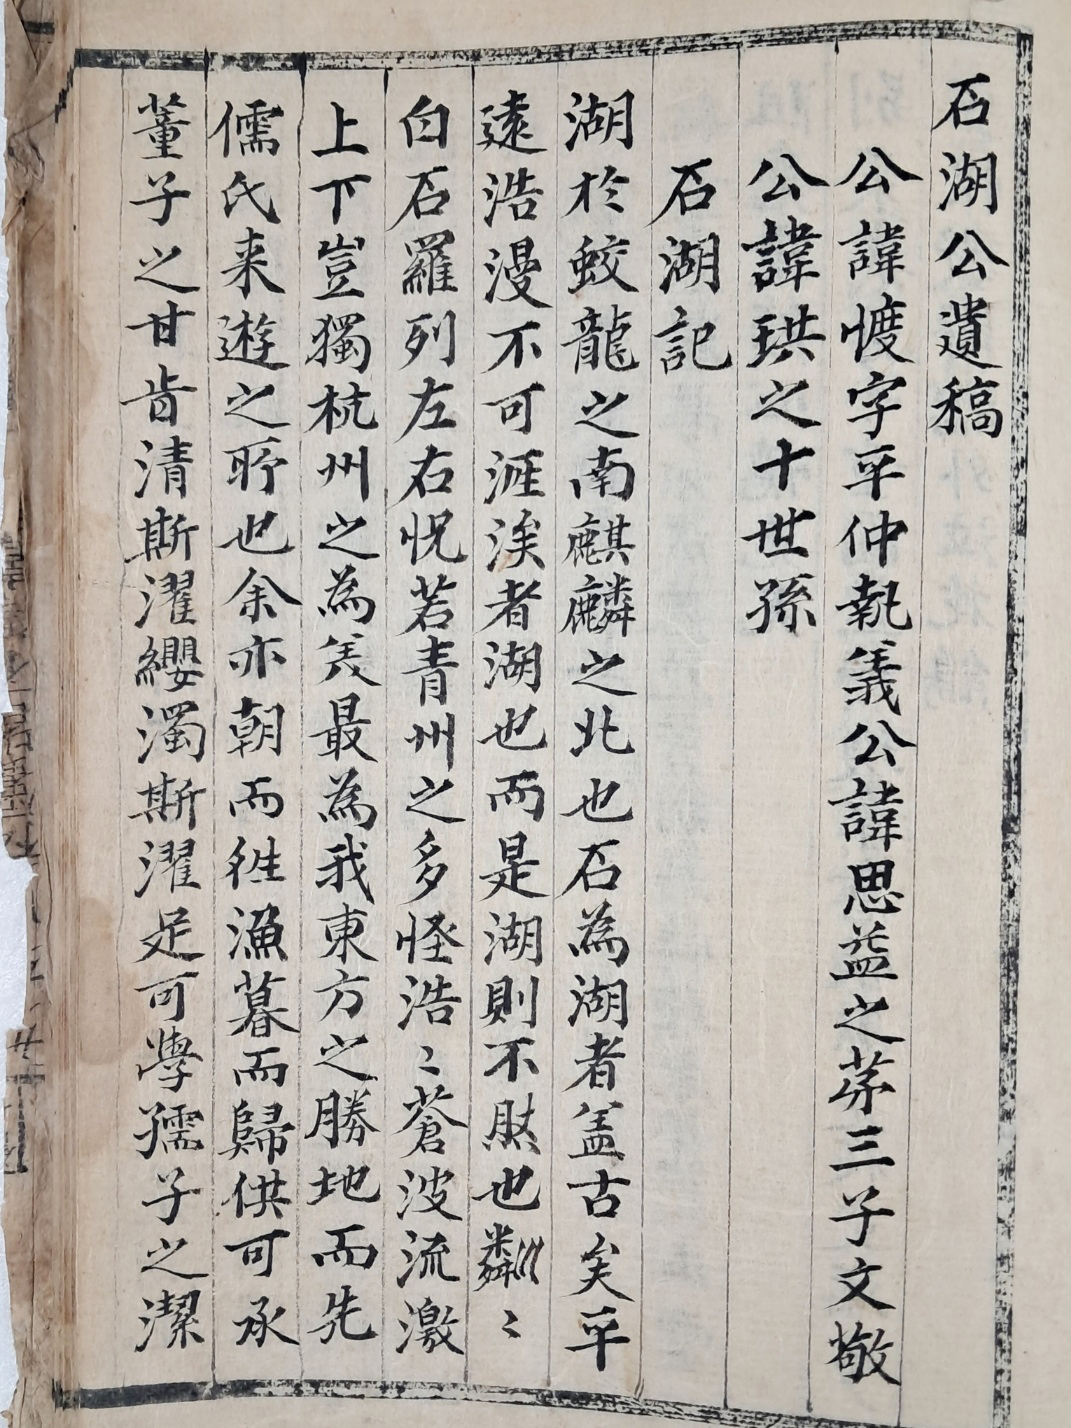 石湖公遺稿
公諱㦀字平仲執義公諱思益之茅三子文敬
公諱珙之十世孫
石湖記
湖於蛟龍之南麒麟之北也石為湖者盖古矣平
遠浩漫不可涯涘者湖也而是湖則不然也粼〻
白石羅列左右怳若青州之多怪浩〻蒼波流激
上下豈獨杭州之為羙最為我東方之勝地而先
儒氏来遊之所也余亦朝而徃漁暮而歸供可承
董子之甘旨清斯濯纓濁斯濯足可學孺子之潔